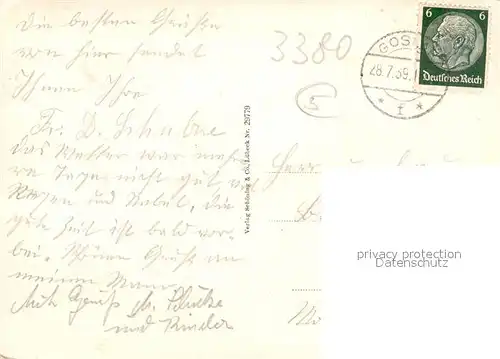 Die besten Grüße
von hier sendet
Ihnen Ihre
Fr. D. Schulze
Das Wetter war mehre-
re Tage nicht gut viel
Regen und Nebel, die
gute Zeit ist bald vor-
bei. Schönen Gruß an
meinen Mann
Mit Gruß Fr. Schulze
und Kinder
3380
5
Verlag Schöning & Co., Lübeck Nr. 29779
GOS
28.7.39.1
* I *
6 6
Deutsches Reich
Herr
privacy protection
Datenschutz